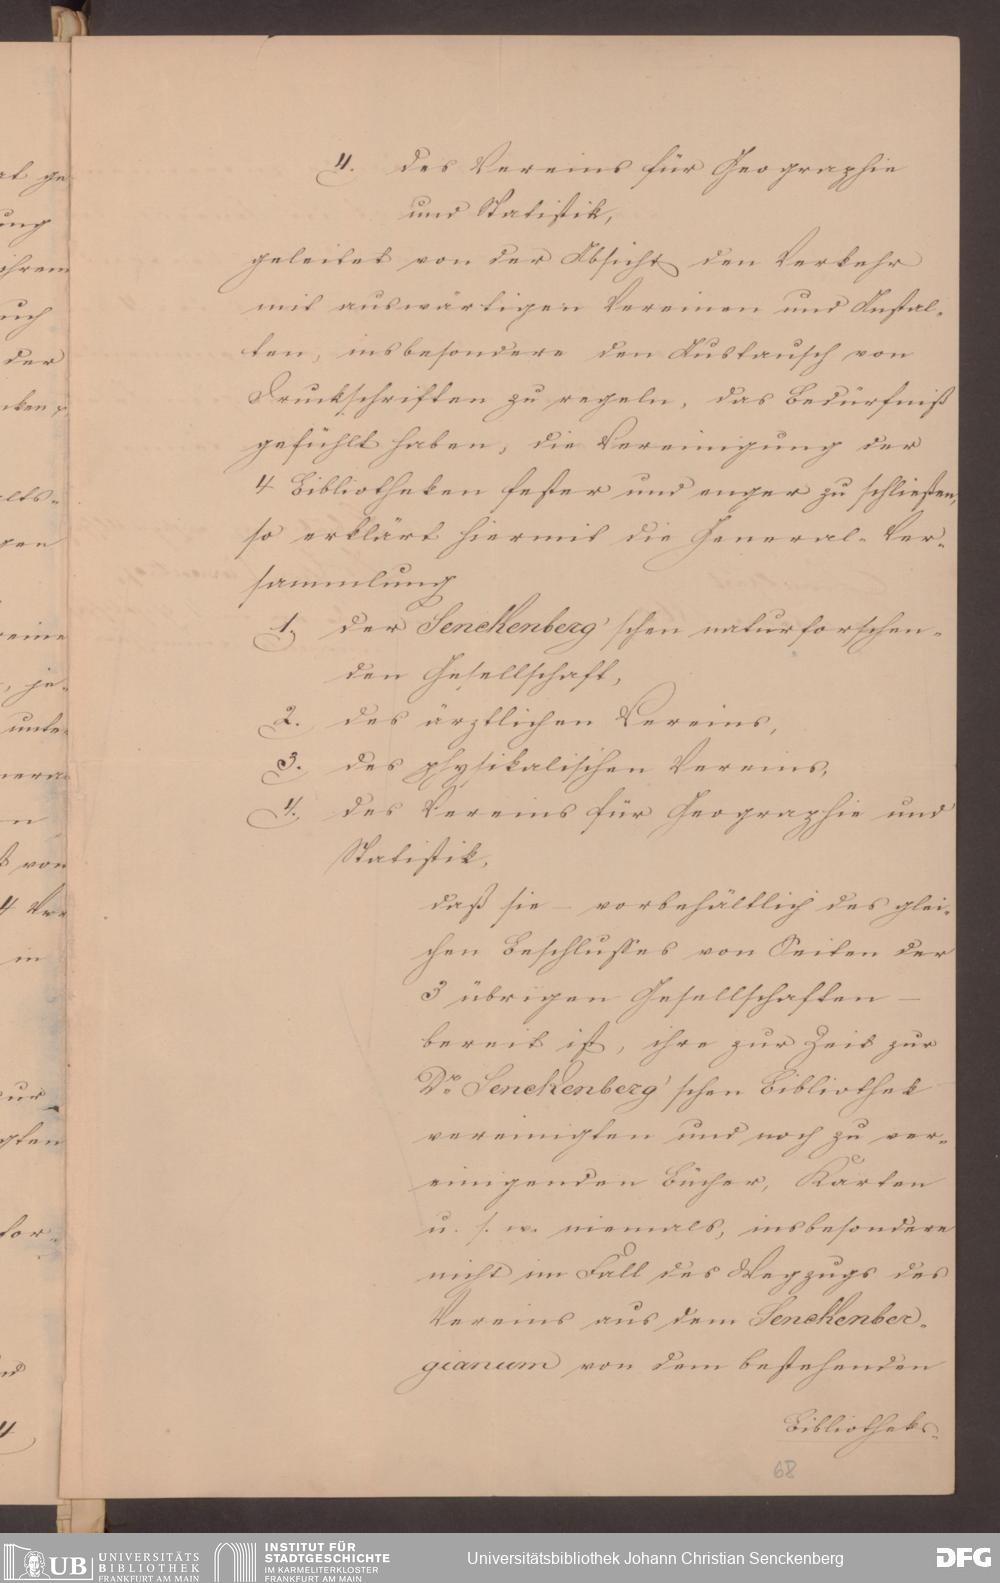 4. des Vereins für Geographie
und Statistik,
geleitet von der Absicht den Verkehr
mit auswärtigen Vereinen und Anstal-
ten, insbesondere den Austausch von
Druckschriften zu regeln, das Bedürfniß
gefühlt haben, die Vereinigung der
4 Bibliotheken fester und enger zu schließen,
so erklärt hiermit die General-Ver-
sammlung
1. der Senckenberg'schen naturforschen-
den Gesellschaft,
2. des ärztlichen Vereins,
3. des physikalischen Vereins,
4. des Vereins für Geographie und
Statistik,
daß sie – vorbehältlich des glei-
chen Beschlusses von Seiten der
3 übrigen Gesellschaften –
bereit ist, ihre zur Zeit zur
Dr. Senckenberg'schen Bibliothek
vereinigten und noch zu ver-
einigenden Bücher, Karten
u. s. w. niemals, insbesondere
nicht im Fall des Wegzugs des
Vereins aus dem Senckenber-
gianum von dem bestehenden
Bibliotheks-
68
UB UNIVERSITÄTS
BIBLIOTHEK
FRANKFURT AM MAIN
INSTITUT FÜR
STADTGESCHICHTE
IM KARMELITERKLOSTER
FRANKFURT AM MAIN
Universitätsbibliothek Johann Christian Senckenberg
DFG